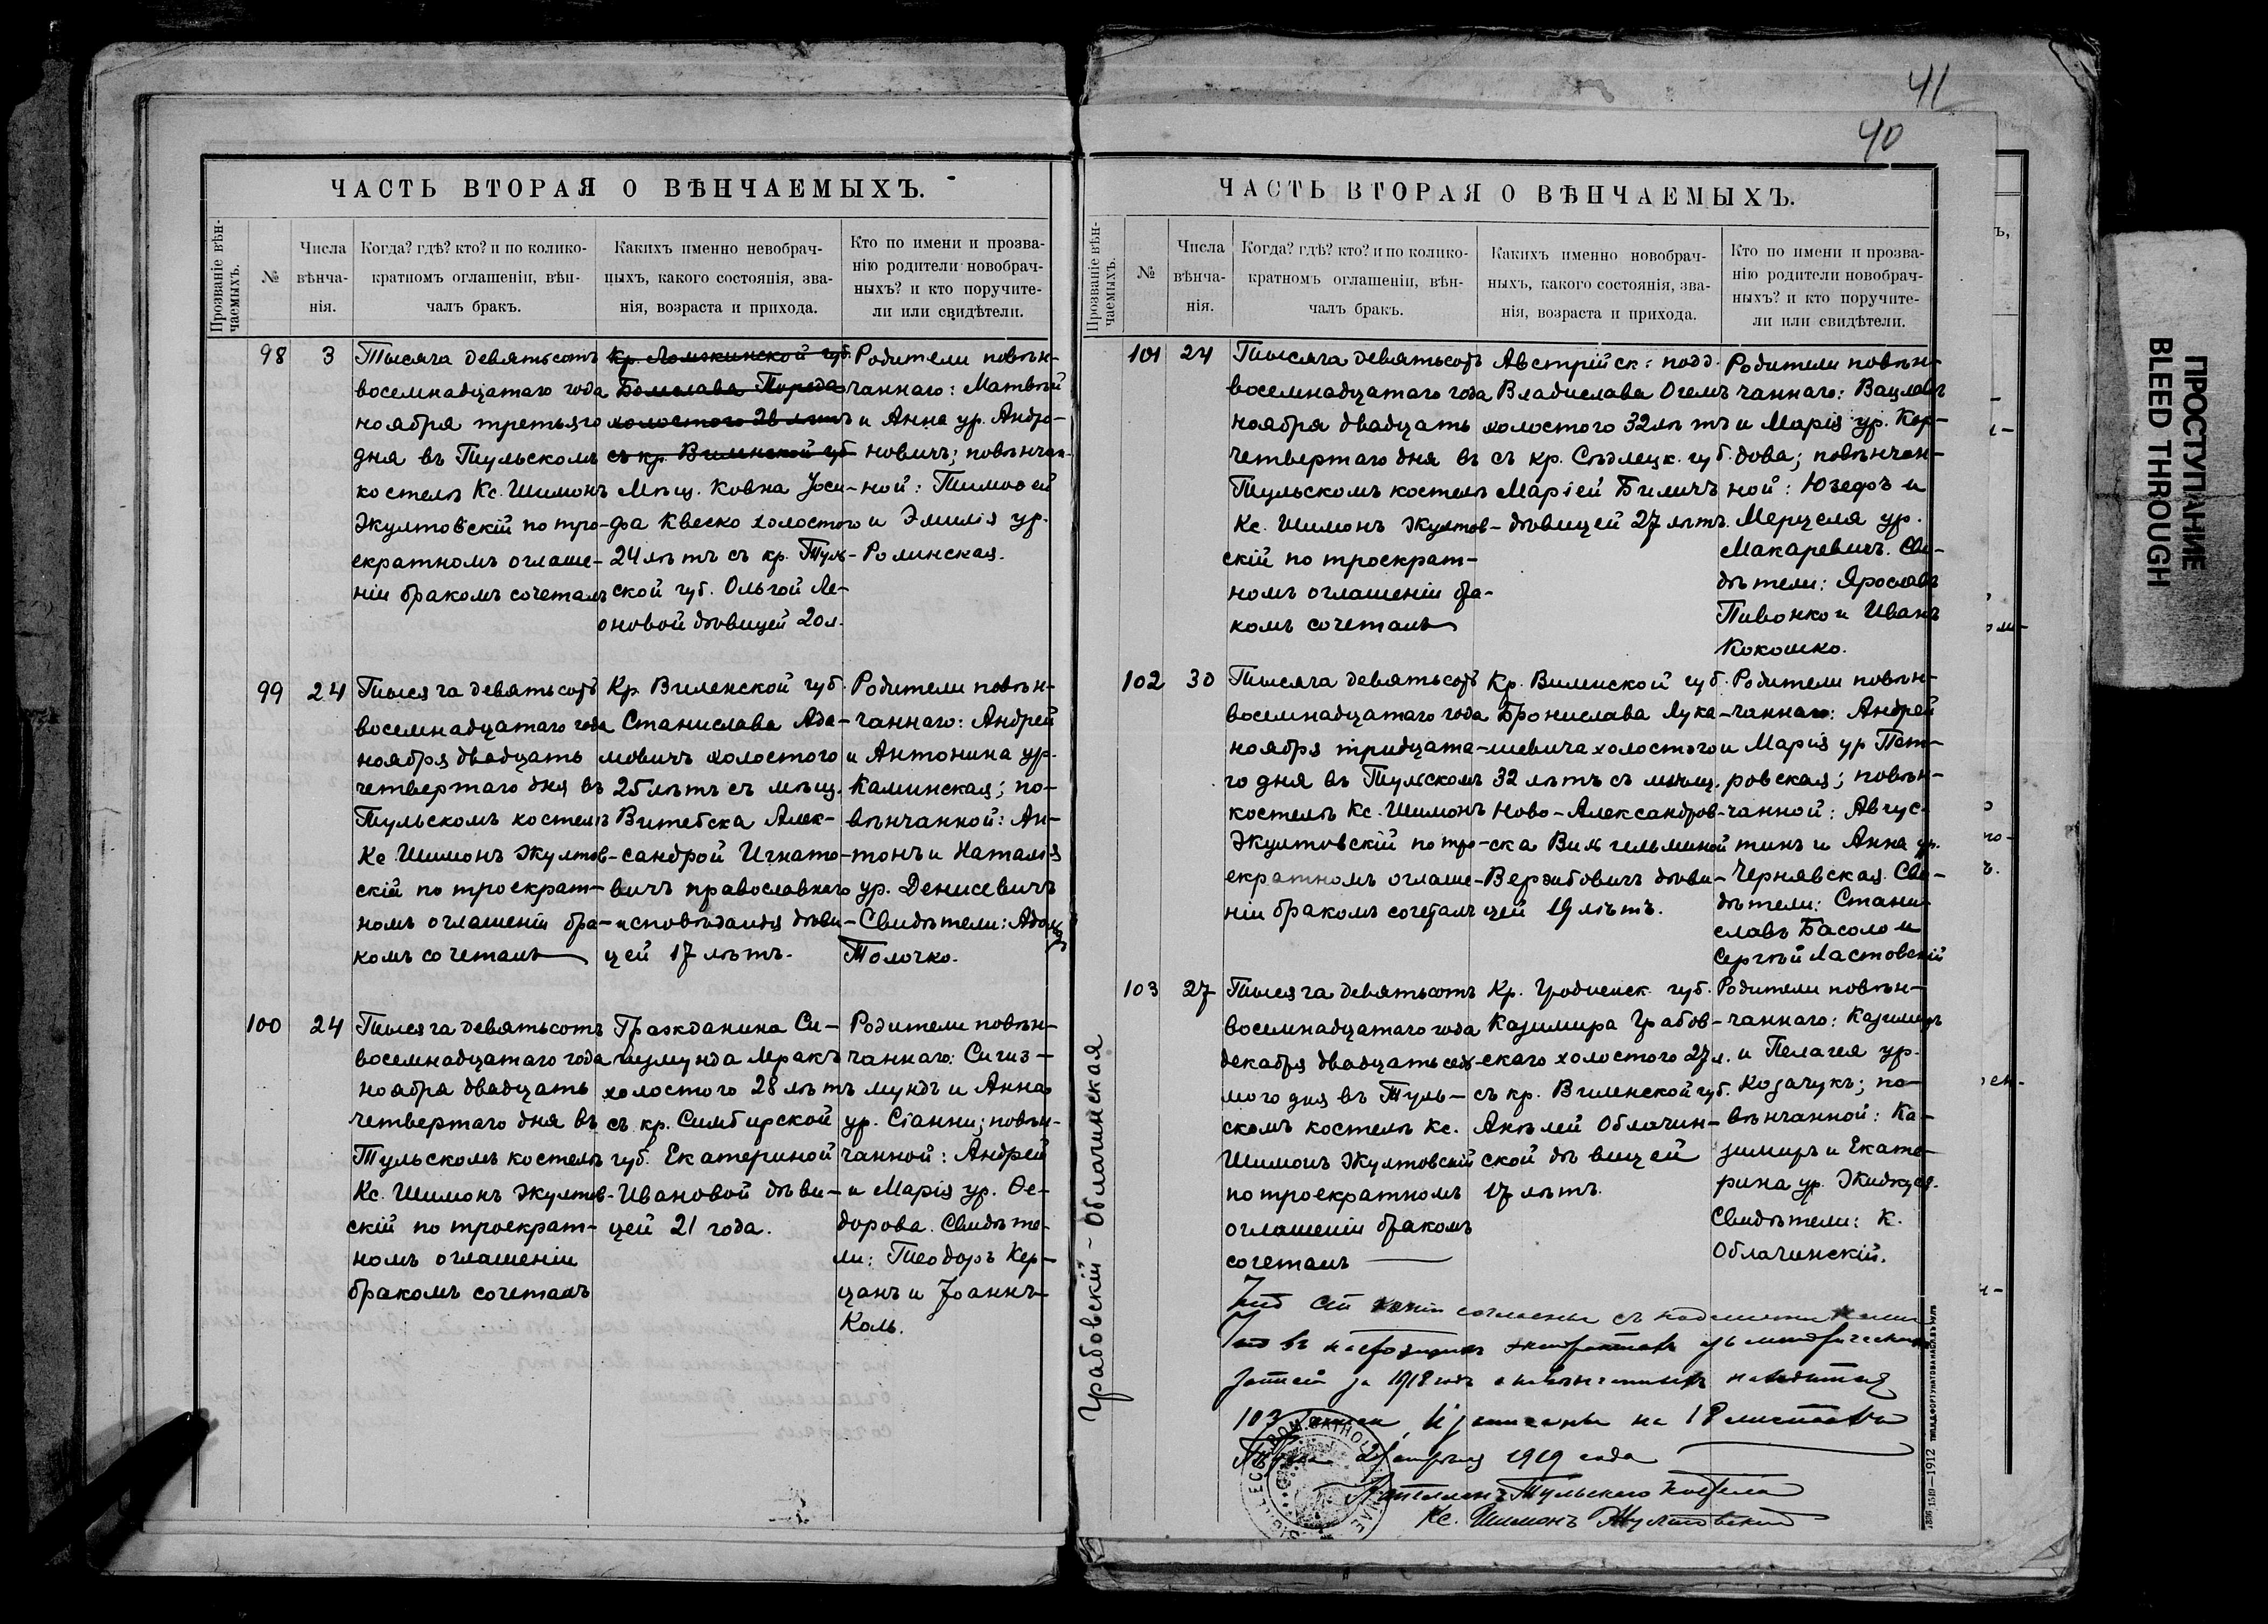 41
40
ЧАСТЬ ВТОРАЯ О ВѢНЧАЕМЫХЪ.
Прозваніе вѣн-
чаемыхъ.
№
Числа
вѣнча-
нія.
Когда? гдѣ? кто? и по колико-
кратномъ оглашеніи, вѣн-
чалъ бракъ.
Какихъ именно невобрач-
ныхъ, какого состоянія, зва-
нія, возраста и прихода.
Кто по имени и прозва-
нію родители новобрач-
ныхъ? и кто поручите-
ли или свидѣтели.
98
3
Тысяча девятьсотъ
восемнадцатаго года
ноября третьяго
дня въ Тульскомъ
костелѣ Кс. Шимонъ
Жултовскій по тро-
екратномъ оглаше-
ніи бракомъ сочеталъ
Кр. Ломжинской губ.
холостого 28 лѣтъ
съ кр. Виленской губ
Мѣщ. Ковна Іоси-
фа Квеско холостого
24 лѣтъ съ кр. Туль-
ской губ. Ольгой Ле-
оновой дѣвицей 20 л.
Родители повѣн-
чаннаго: Матвѣй
и Анна ур. Андро-
новичъ; повѣнчан-
ной: Тимоѳей
и Эмилія ур.
Ролинская.
99
24
Тысяча девятьсотъ
восемнадцатаго года
ноября двадцать
четвертаго дня въ
Тульскомъ костелѣ
Кс Шимонъ Жултов-
скій по троекрат-
номъ оглашеніи бра-
комъ сочеталъ
Кр. Виленской губ.
Станислава Ада-
мовичъ холостого
25 лѣтъ съ мѣщ.
Витебска Алек-
сандрой Игнато-
вичъ православнаго
исповѣданія дѣви-
цей 17 лѣтъ.
Родители повѣн-
чаннаго: Андрей
и Антонина ур.
Каминская; по-
вѣнчанной: Ан-
тонъ и Наталія
ур. Денисевичъ
Свидѣтели: Адамъ
Толочко.
100
24
Тысяча девятьсотъ
восемнадцатаго года
ноября двадцать
четвертаго дня въ
Тульскомъ костелѣ
Кс. Шимонъ Жултов-
скій по троекрат-
номъ оглашеніи
бракомъ сочеталъ
Гражданина Си-
гизмунда Мракъ
холостого 28 лѣтъ
съ кр. Симбирской
губ. Екатериной
Ивановой дѣви-
цей 21 года.
Родители повѣн-
чаннаго: Сигиз-
мундъ и Анна
ур. Сіанни; повѣн-
чанной: Андрей
и Марія ур. Ѳе-
дорова. Свидѣте-
ли: Теодоръ Кер-
цанъ и Іоаннъ
Коль.
ЧАСТЬ ВТОРАЯ О ВѢНЧАЕМЫХЪ.
Прозваніе вѣн-
чаемыхъ.
№
Числа
вѣнча-
нія.
Когда? гдѣ? кто? и по колико-
кратномъ оглашеніи, вѣн-
чалъ бракъ.
Какихъ именно новобрач-
ныхъ, какого состоянія, зва-
нія, возраста и прихода.
Кто по имени и прозва-
нію родители новобрач-
ныхъ? и кто поручите-
ли или свидѣтели.
101
24
Тысяча девятьсотъ
восемнадцатаго года
ноября двадцать
четвертаго дня въ
Тульскомъ костелѣ
Кс. Шимонъ Жултов-
скій по троекрат-
номъ оглашеніи бра-
комъ сочеталъ
Австрійск: подд.
Владислава Огемъ
холостого 32 лѣтъ
съ кр. Сѣдлецк. губ.
Маріей Биличъ
дѣвицей 27 лѣтъ.
Родители повѣн-
чаннаго: Вацлавъ
и Марія ур. Кор-
дова; повѣнчан-
ной: Юзефъ и
Мерцеля ур.
Макаревичъ. Сви-
дѣтели: Ярославъ
Пивонко и Иванъ
Кокошко.
102
30
Тысяча девятьсотъ
восемнадцатаго года
ноября тридцата-
го дня въ Тульскомъ
костелѣ Кс. Шимонъ
Жултовскій по тро-
екратномъ оглаше-
ніи бракомъ сочеталъ
Кр. Виленской губ.
Бронислава Лука-
шевича холостого
32 лѣтъ съ мѣщ.
Ново-Александров-
ска Вильгельминой
Вержбовичъ дѣви-
цей 19 лѣтъ.
Родители повѣн-
чаннаго: Андрей
и Марія ур Пет-
ровская; повѣн-
чанной: Авгус-
тинъ и Анна ур.
Чернявская. Сви-
дѣтели: Стани-
славъ Басоло и
Сергѣй Ластовскій
Грабовскій - Облачинская
103
27
Тысяча девятьсотъ
восемнадцатаго года
декабря двадцать седь-
мого дня въ Туль-
скомъ костелѣ Кс.
Шимонъ Жултовскій
по троекратномъ
оглашеніи бракомъ
сочеталъ
Кр. Гродненск. губ.
Казимира Грабов-
скаго холостого 27 л.
съ кр. Виленской губ.
Анѣлей Облачин-
ской дѣвицей
17 лѣтъ.
Родители повѣн-
чаннаго: Казимиръ
и Пелагея ур.
Козачукъ; по-
вѣнчанной: Ка-
зимиръ и Екате-
рина ур. Жидкуся.
Свидѣтели: К.
Облачинскій.
въ настоящемъ экстрактѣ изъ метрическихъ
записей за 1918 годъ о повѣнчанныхъ находится
103 записи и записаны на 18 листахъ
Тула 21 апрѣля 1919 года
Капелланъ Тульскаго Костела
Кс. Шимонъ Жултовскій
1519—1912
ПРОСТУПАНИЕ
BLEED THROUGH